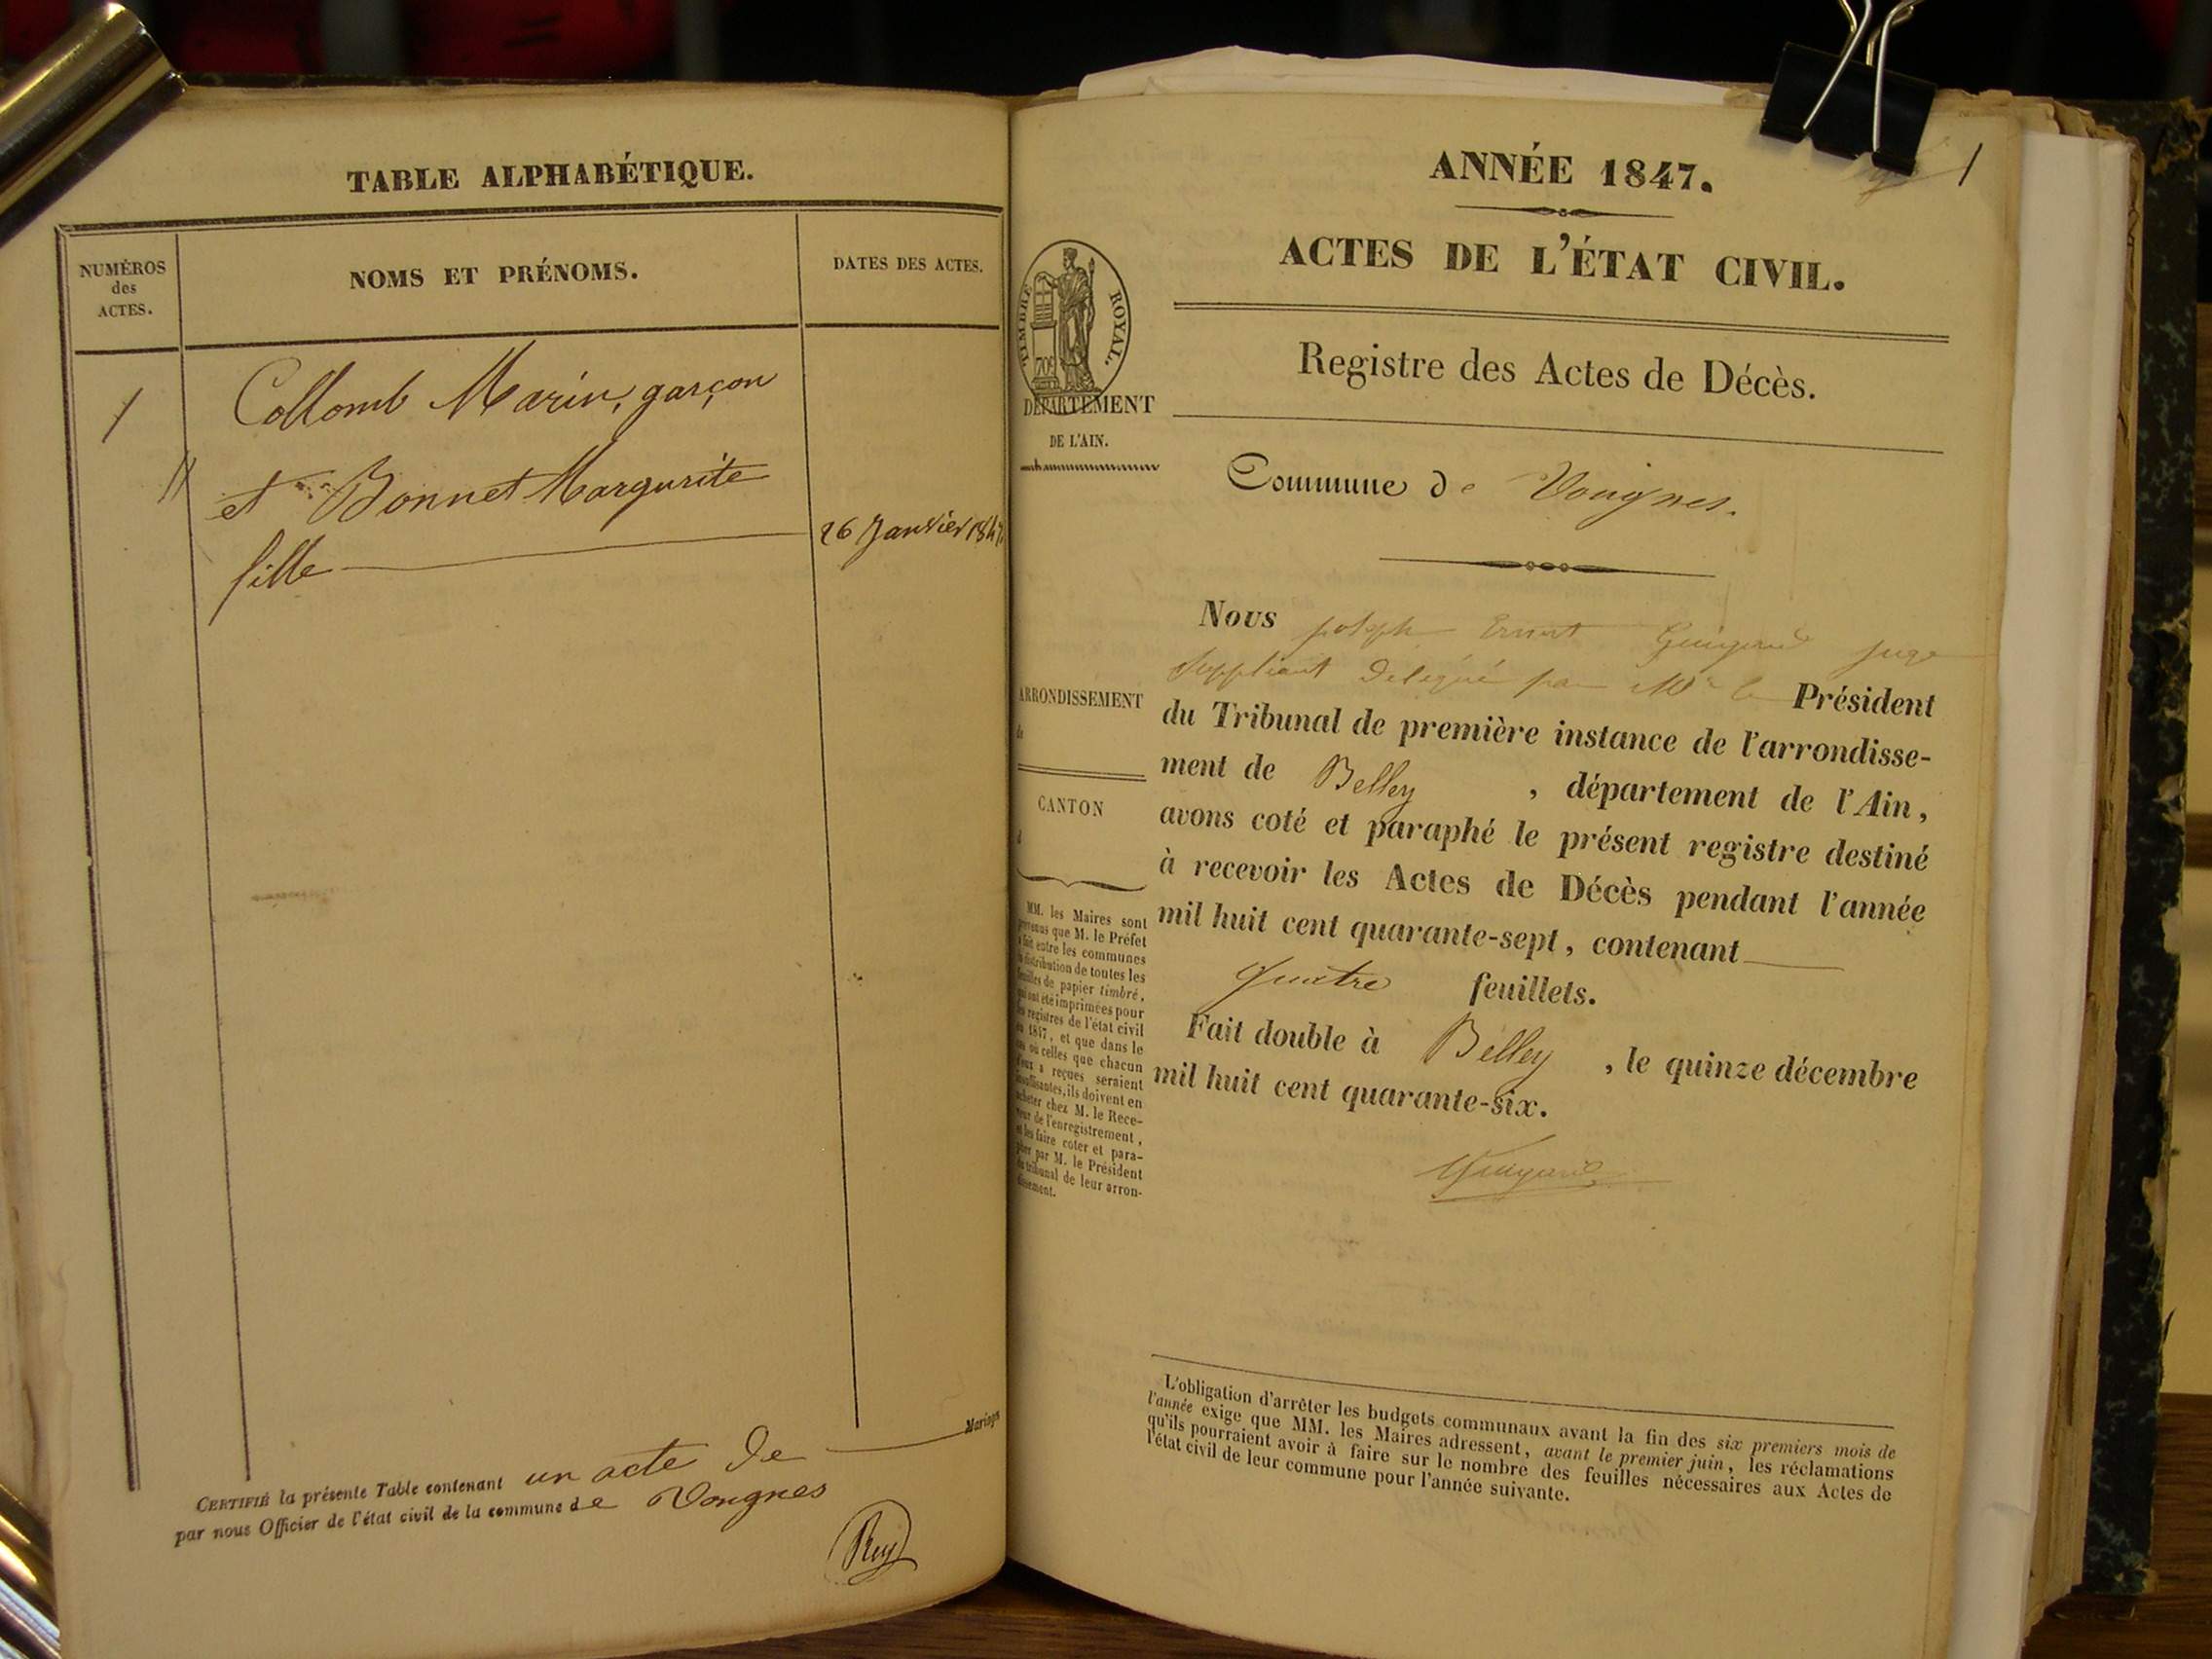 TABLE ALPHABÉTIQUE.
NUMÉROS
des
ACTES.
NOMS ET PRÉNOMS.
DATES DES ACTES.
1
Collomb Marin, garçon
et Bonnet Margurite
fille
26 Janvier 1847
Mariage
CERTIFIÉ la présente Table contenant un acte de
par nous Officier de l'état civil de la commune de Vongnes
Ruy
1
ANNÉE 1847.
ACTES DE L'ÉTAT CIVIL.
TIMBRE ROYAL.
70c
DÉPARTEMENT
DE L'AIN.
Registre des Actes de Décès.
Commune de Vongnes.
ARRONDISSEMENT
de
CANTON
d
MM. les Maires sont
prévenus que M. le Préfet
a fait entre les communes
la distribution de toutes les
feuilles de papier timbré,
qui ont été imprimées pour
les registres de l'état civil
de 1847, et que dans le
cas où celles que chacun
d'eux a reçues seraient
insuffisantes, ils doivent en
acheter chez M. le Rece-
veur de l'enregistrement,
et les faire coter et para-
pher par M. le Président
du tribunal de leur arron-
dissement.
Nous Joseph Ernest Guigard juge
Suppléant Délégué par Mr le Président
du Tribunal de première instance de l'arrondisse-
ment de Belley, département de l'Ain,
avons coté et paraphé le présent registre destiné
à recevoir les Actes de Décès pendant l'année
mil huit cent quarante-sept, contenant
quatre feuillets.
Fait double à Belley, le quinze décembre
mil huit cent quarante-six.
Guigard
L'obligation d'arrêter les budgets communaux avant la fin des six premiers mois de
l'année exige que MM. les Maires adressent, avant le premier juin, les réclamations
qu'ils pourraient avoir à faire sur le nombre des feuilles nécessaires aux Actes de
l'état civil de leur commune pour l'année suivante.